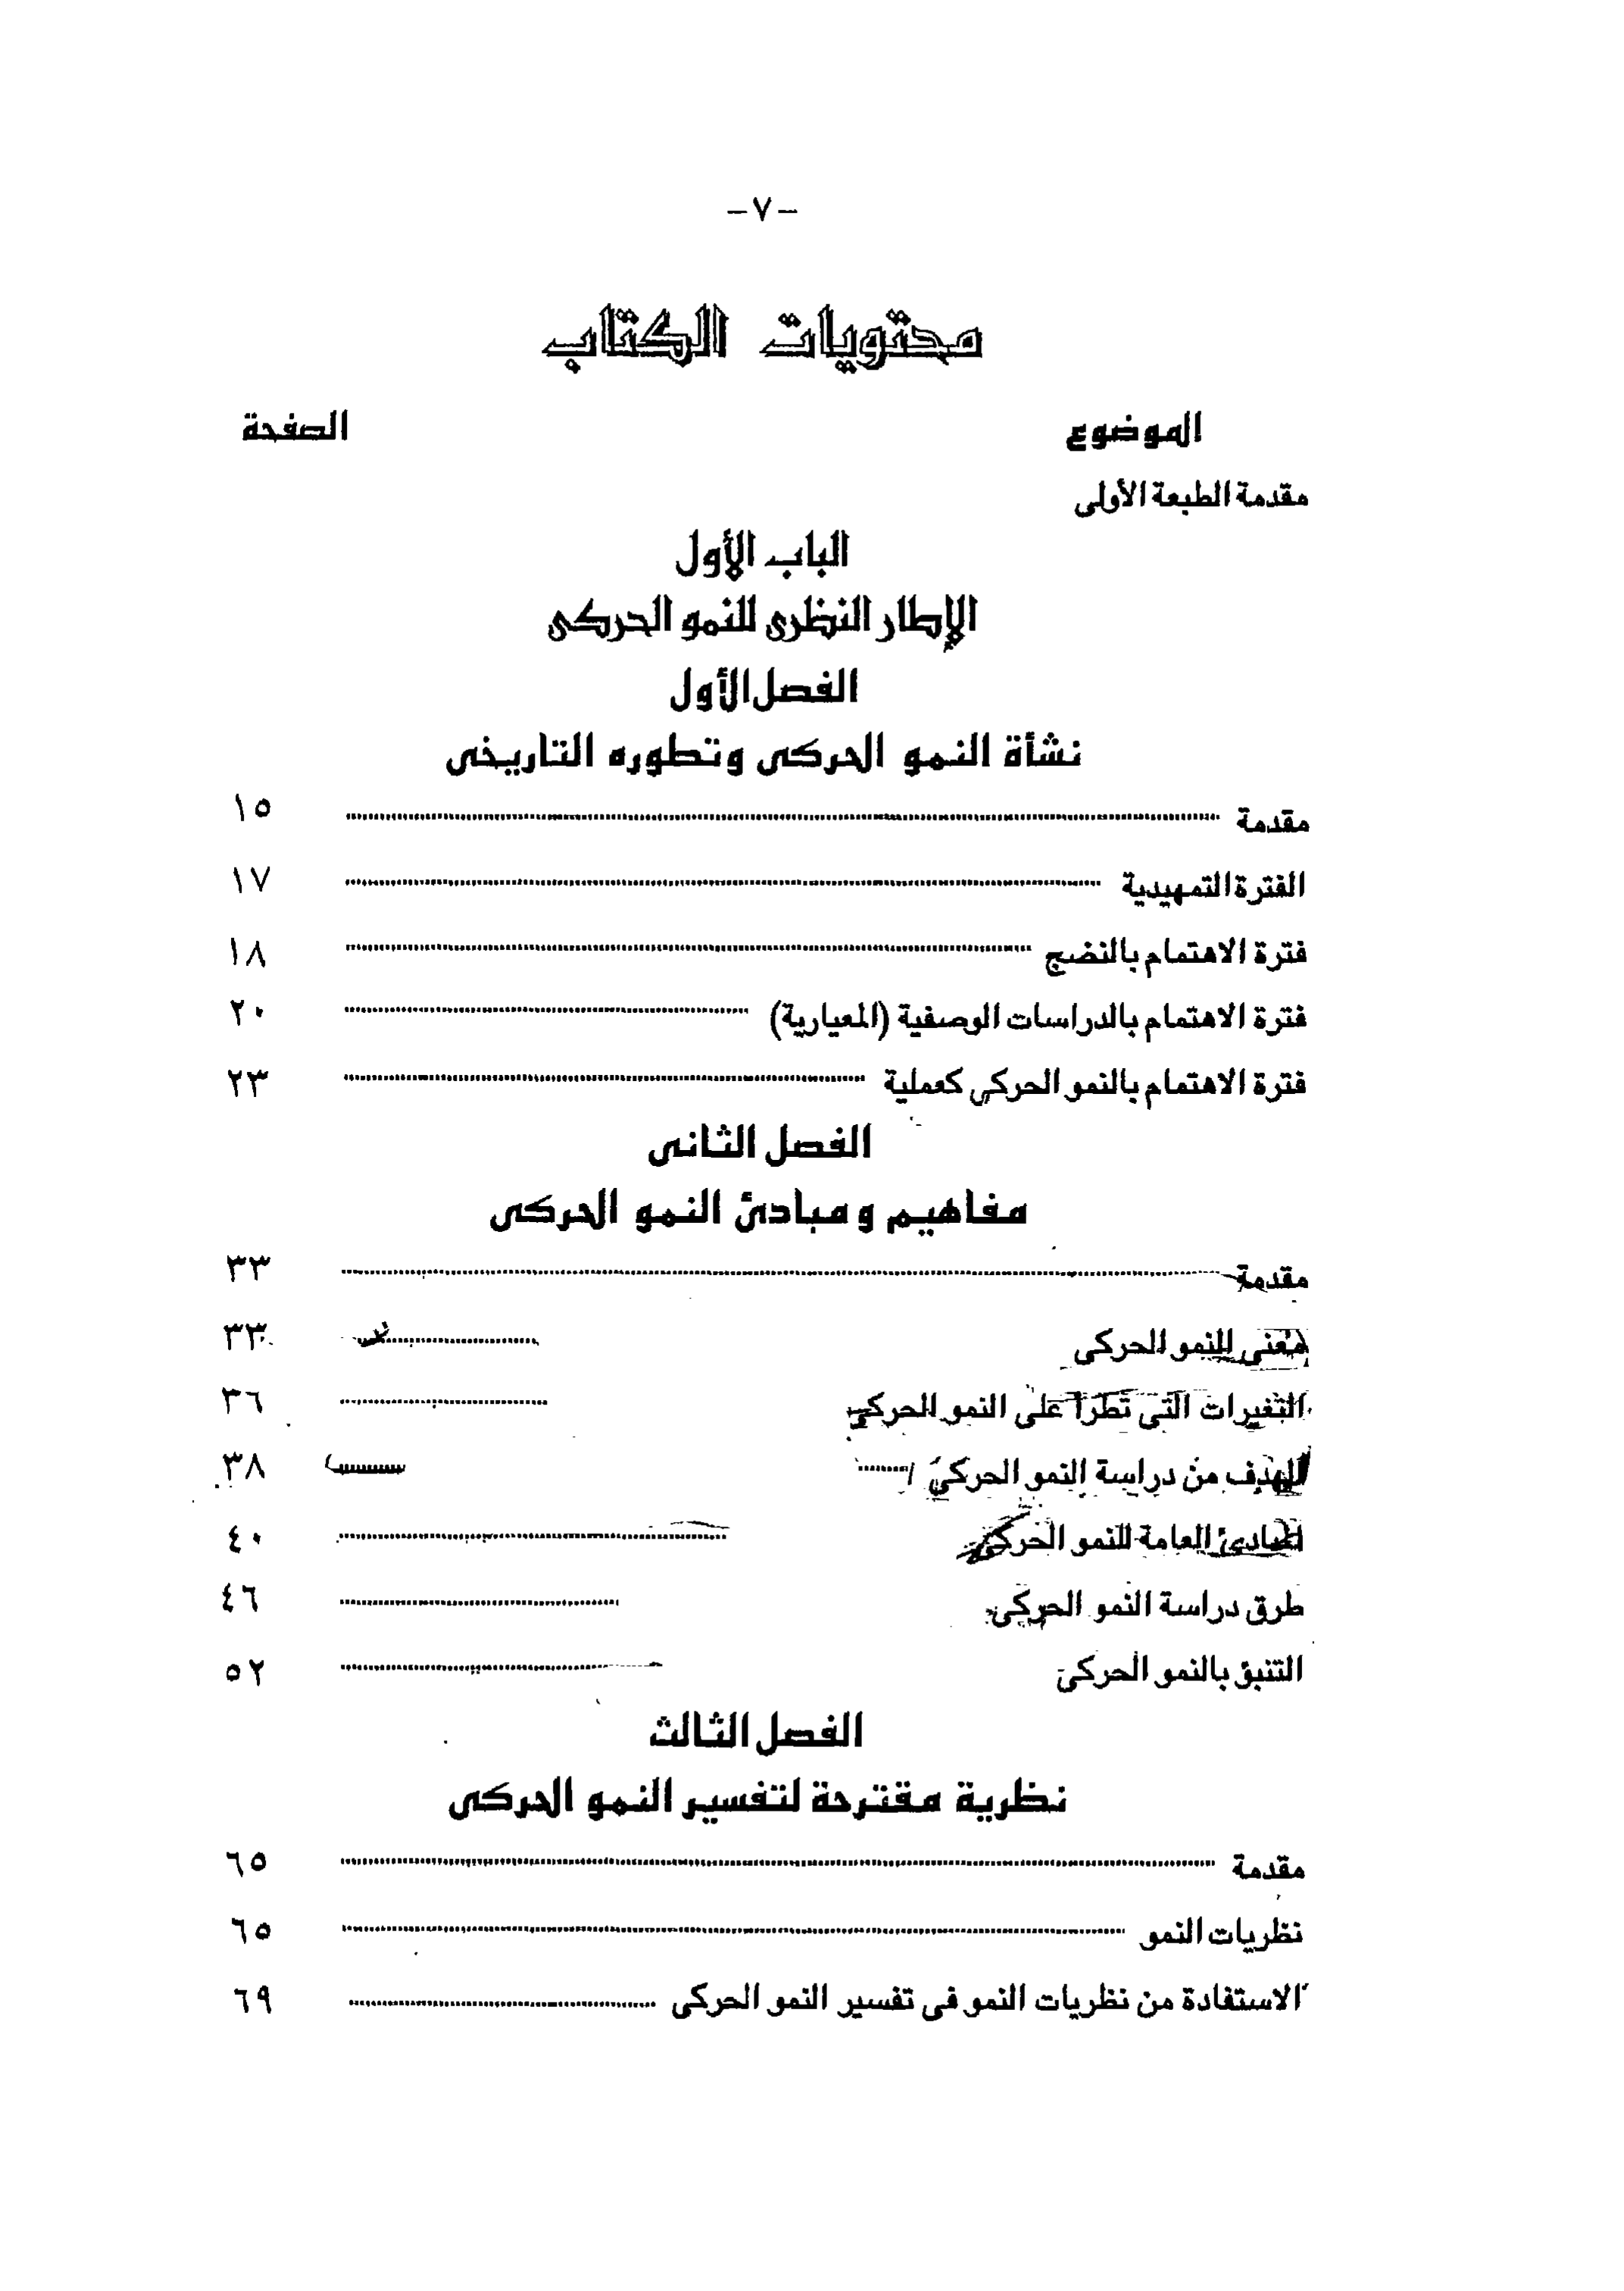 -٧-
محتويات الكتاب
الموضوع الصفحة
مقدمة الطبعة الأولى
الباب الأول
الإطار النظرى للنمو الحركى
الفصل الأول
نشأة النمو الحركى وتطوره التاريخى
مقدمة ١٥
الفترة التمهيدية ١٧
فترة الاهتمام بالنضج ١٨
فترة الاهتمام بالدراسات الوصفية (المعيارية) ٢٠
فترة الاهتمام بالنمو الحركى كعملية ٢٣
الفصل الثانى
مفاهيم ومبادئ النمو الحركى
مقدمة ٣٣
معنى النمو الحركى ٣٣
التغيرات التى تطرأ على النمو الحركى ٣٦
الهدف من دراسة النمو الحركى ٣٨
العامة للنمو الحركى ٤٠
طرق دراسة النمو الحركى ٤٦
التنبؤ بالنمو الحركى ٥٢
الفصل الثالث
نظرية مقترحة لتفسير النمو الحركى
مقدمة ٦٥
نظريات النمو ٦٥
الاستفادة من نظريات النمو فى تفسير النمو الحركى ٦٩